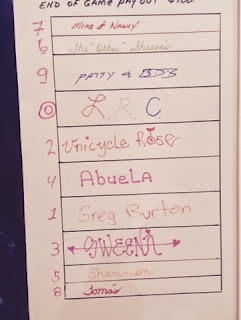 END OF GAME PAY OUT $100.
7 MIKE & NANCY
6 The "Other" Steve's
9 PATTY & BOB
0 L. R. C.
2 Unicycle Rose
4 Abuela
1 Greg Burton
3 GWEEN
5 Shannon
8 Tomas